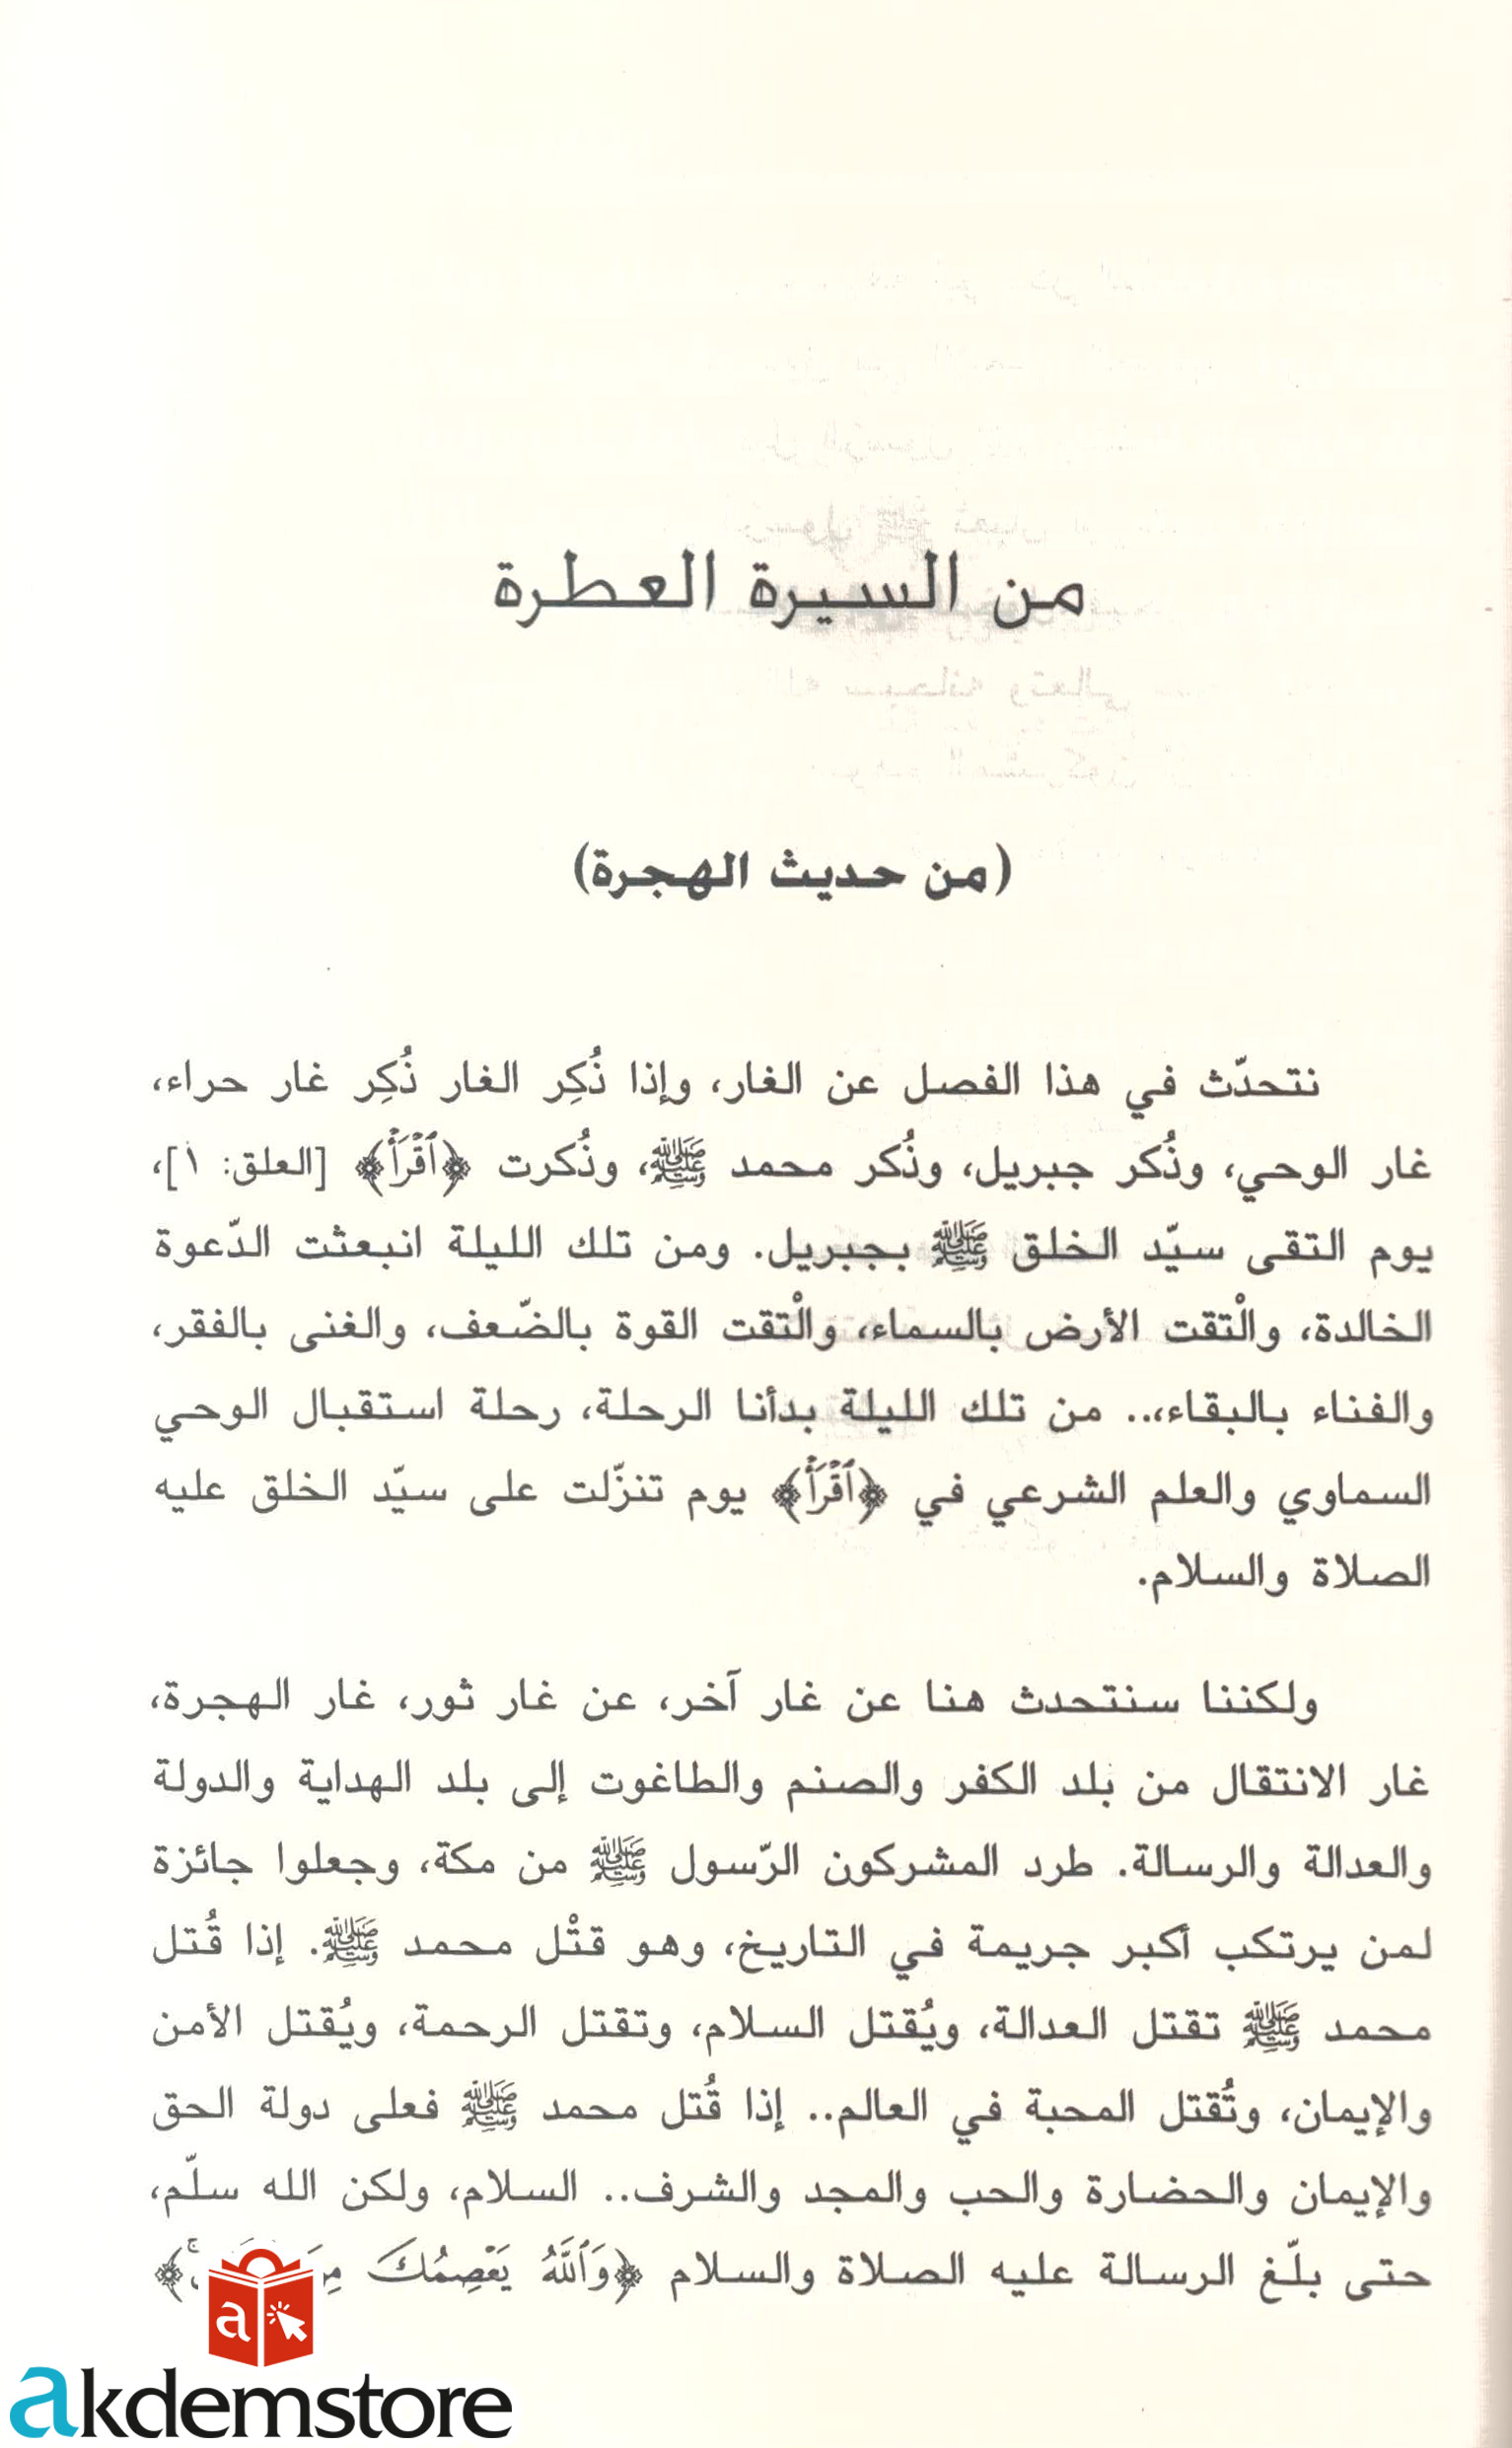 من السيرة العطرة
(من حديث الهجرة)
نتحدّث في هذا الفصل عن الغار، وإذا ذُكِر الغار ذُكِر غار حراء،
غار الوحي، وذُكر جبريل، وذُكر محمد ﷺ، وذُكرت ﴿ٱقۡرَأۡ﴾ [العلق: ١]،
يوم التقى سيّد الخلق ﷺ بجبريل. ومن تلك الليلة انبعثت الدّعوة
الخالدة، والْتقت الأرض بالسماء، والْتقت القوة بالضّعف، والغنى بالفقر،
والفناء بالبقاء،.. من تلك الليلة بدأنا الرحلة، رحلة استقبال الوحي
السماوي والعلم الشرعي في ﴿ٱقۡرَأۡ﴾ يوم تنزّلت على سيّد الخلق عليه
الصلاة والسلام.
ولكننا سنتحدث هنا عن غار آخر، عن غار ثور، غار الهجرة،
غار الانتقال من بلد الكفر والصنم والطاغوت إلى بلد الهداية والدولة
والعدالة والرسالة. طرد المشركون الرّسول ﷺ من مكة، وجعلوا جائزة
لمن يرتكب أكبر جريمة في التاريخ، وهو قتْل محمد ﷺ. إذا قُتل
محمد ﷺ تقتل العدالة، ويُقتل السلام، وتقتل الرحمة، ويُقتل الأمن
والإيمان، وتُقتل المحبة في العالم.. إذا قُتل محمد ﷺ فعلى دولة الحق
والإيمان والحضارة والحب والمجد والشرف.. السلام، ولكن الله سلّم،
حتى بلّغ الرسالة عليه الصلاة والسلام ﴿وَٱللَّهُ يَعۡصِمُكَ ﴾
a
akdemstore